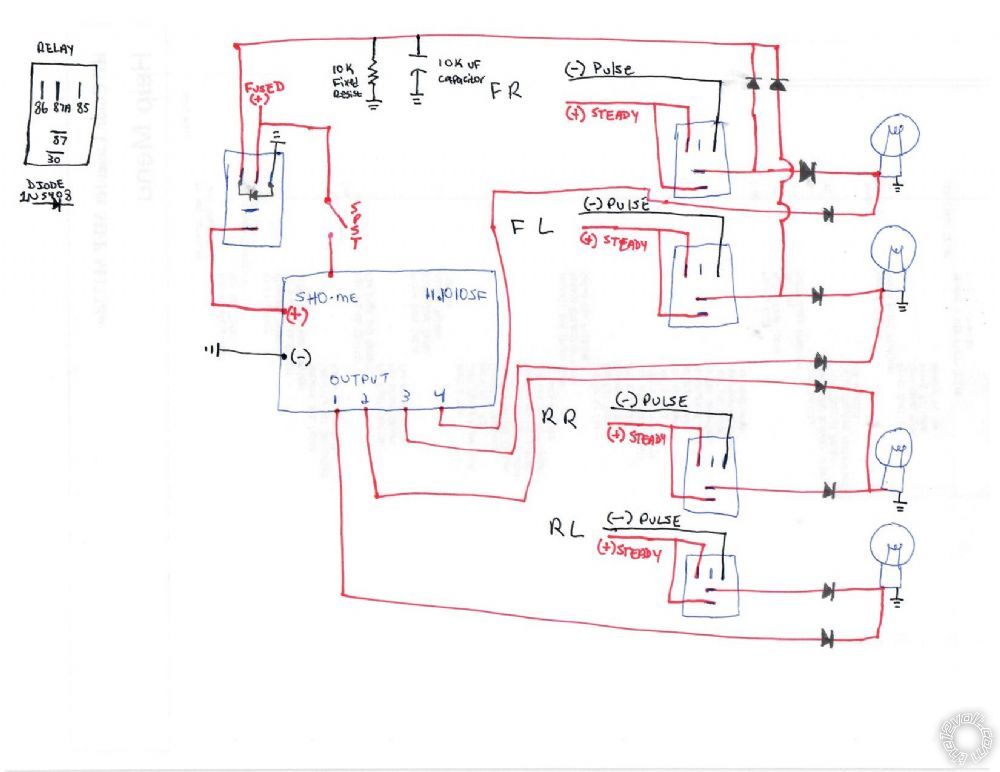 RELAY
86 87A 85
87
30
DIODE
1N5408
FUSED
(+)
10K
Fixed
Resist
10K UF
CAPACITOR
FR
(-) Pulse
(+) STEADY
SPST
FL
(-) PULSE
(+) STEADY
SHO-ME
(+)
(-)
OUTPUT
1 2 3 4
RR
(-) PULSE
(+) STEADY
RL
(-) PULSE
(+) STEADY
the12volt.com